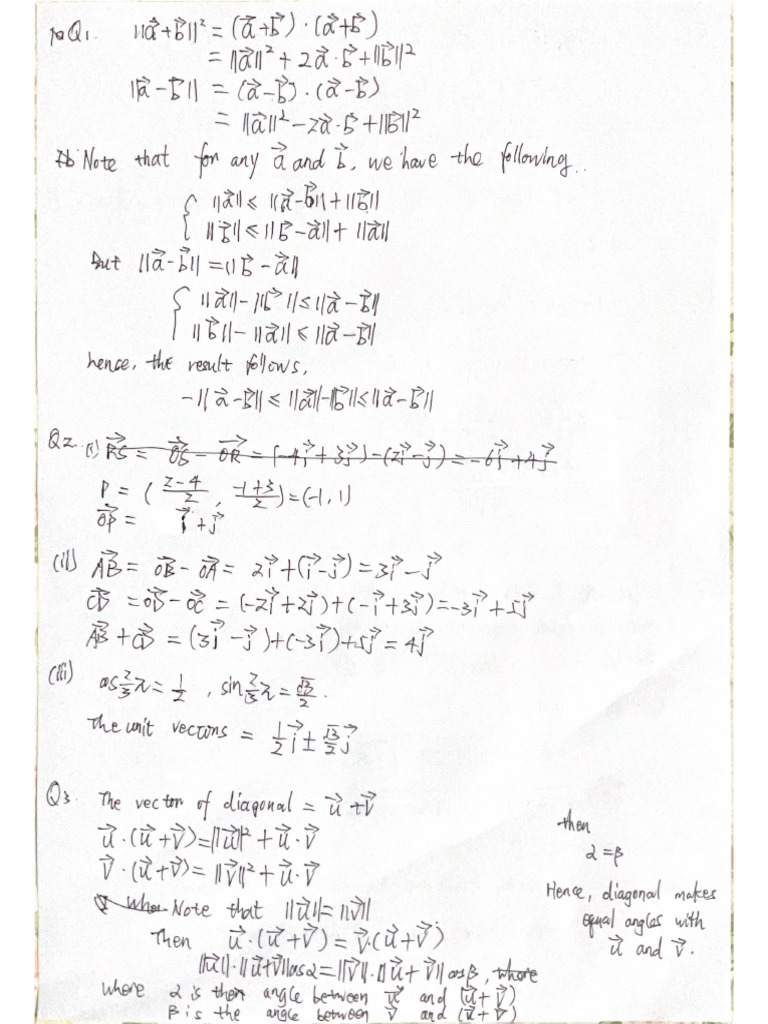 Q1. ||a⃗+b⃗||² = (a⃗+b⃗)·(a⃗+b⃗)
= ||a⃗||² + 2a⃗·b⃗ + ||b⃗||²
||a⃗-b⃗|| = (a⃗-b⃗)·(a⃗-b⃗)
= ||a⃗||² - 2a⃗·b⃗ + ||b⃗||²
Note that for any a⃗ and b⃗, we have the following..
{ ||a⃗|| ≤ ||a⃗-b⃗|| + ||b⃗||
||b⃗|| ≤ ||b⃗-a⃗|| + ||a⃗||
But ||a⃗-b⃗|| = ||b⃗-a⃗||
{ ||a⃗|| - ||b⃗|| ≤ ||a⃗-b⃗||
||b⃗|| - ||a⃗|| ≤ ||a⃗-b⃗||
hence, the result follows,
-||a⃗-b⃗|| ≤ ||a⃗||-||b⃗|| ≤ ||a⃗-b⃗||
Q2. (i) RS⃗ = OS⃗ - OR⃗ = (-4i⃗+3j⃗)-(2i⃗-j⃗) = -6i⃗+4j⃗
P = (2-4/2, -1+3/2) = (-1, 1)
OP⃗ = i⃗+j⃗
(ii) AB⃗ = OB⃗ - OA⃗ = 2i⃗+(i⃗-j⃗) = 3i⃗-j⃗
CD⃗ = OD⃗ - OC⃗ = (-2i⃗+2j⃗)+(-i⃗+3j⃗) = -3i⃗+5j⃗
AB⃗ + CD⃗ = (3i⃗-j⃗)+(-3i⃗)+5j⃗ = 4j⃗
(iii) cos 2/3 π = 1/2, sin 2/3 π = √3/2.
The unit vectors = 1/2 i⃗ ± √3/2 j⃗
Q3. The vector of diagonal = u⃗+v⃗
u⃗·(u⃗+v⃗) = ||u⃗||² + u⃗·v⃗
v⃗·(u⃗+v⃗) = ||v⃗||² + u⃗·v⃗
Note that ||u⃗|| = ||v⃗||
Then u⃗·(u⃗+v⃗) = v⃗·(u⃗+v⃗)
||u⃗||·||u⃗+v⃗|| cos α = ||v⃗||·||u⃗+v⃗|| cos β, where
where α is then angle between u⃗ and (u⃗+v⃗)
β is the angle between v⃗ and (u⃗+v⃗)
then
α = β
Hence, diagonal makes
equal angles with
u⃗ and v⃗.